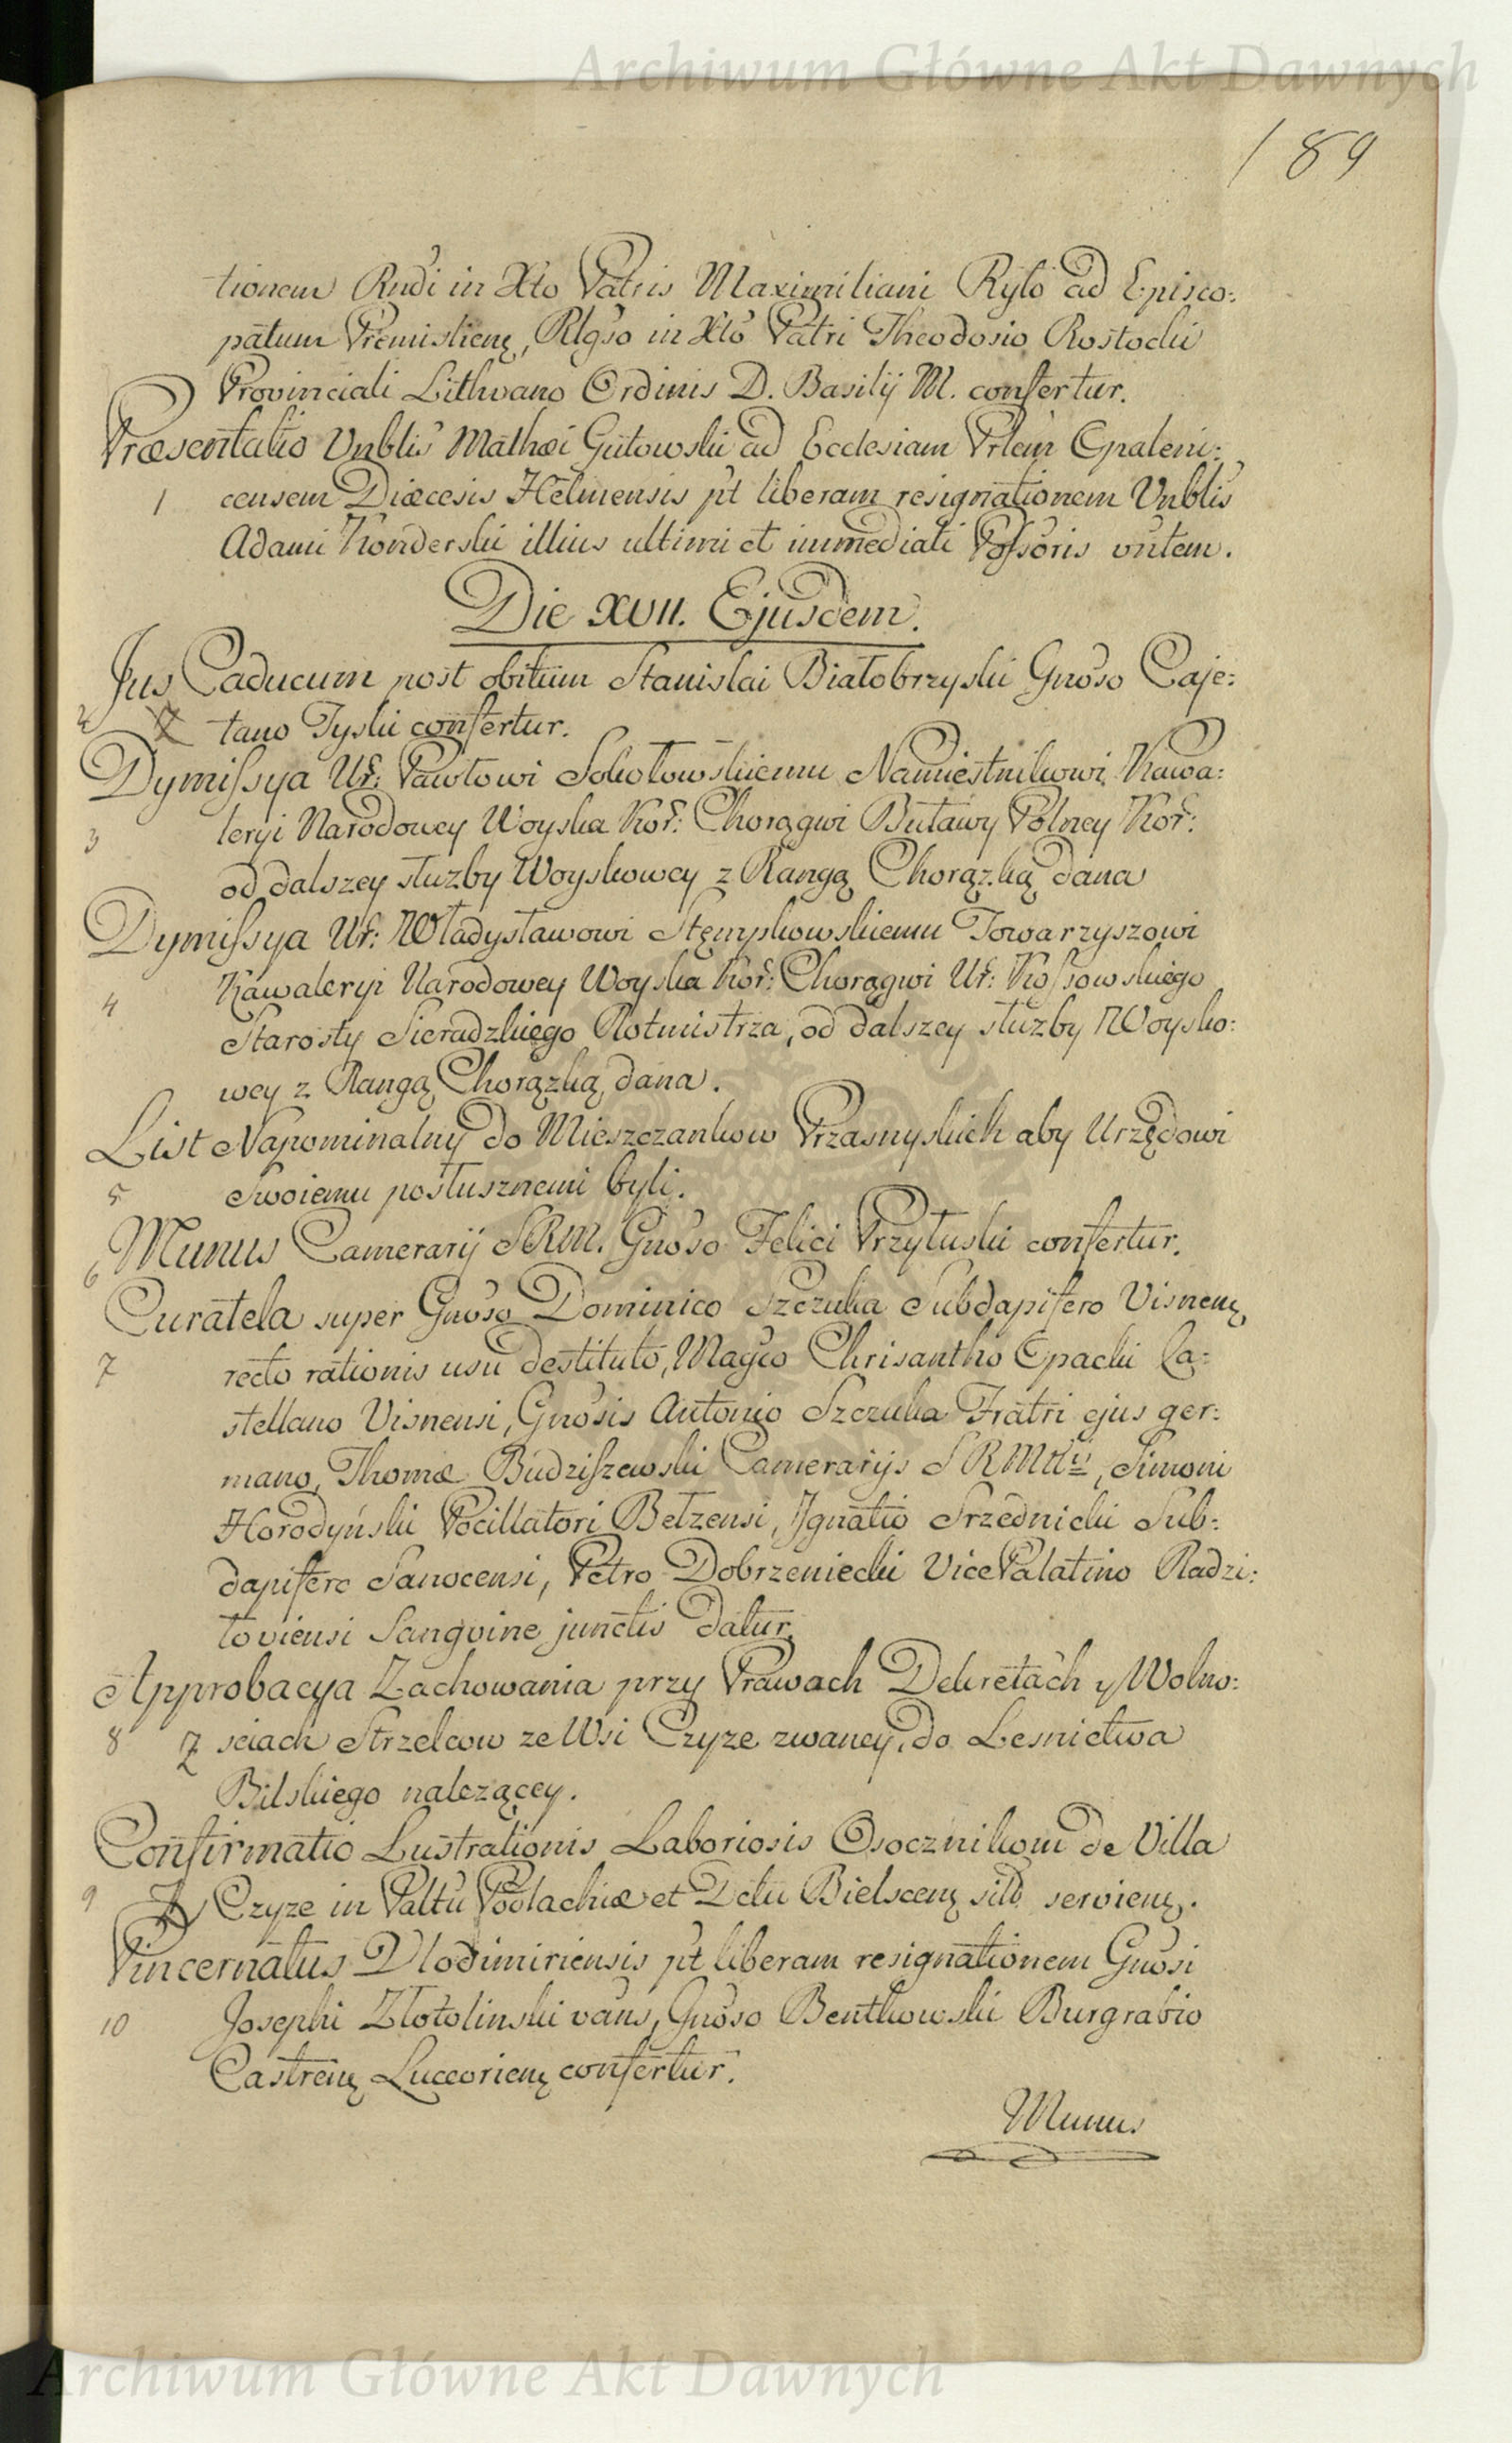 Archiwum Główne Akt Dawnych
189
tionem Rndi in Xto Patris Maximiliani Ryło ad Episco:
patum Premislienę, Rlgso in Xto Patri Theodosio Rostocki
Provinciali Lithvano Ordinis D. Basilij M. confertur.
Præsentatio Vnblis Mathæi Gutowski ad Ecclesiam Prlem Opaleni:
1 censem Diæcesis Helmensis pt liberam resignationem Vnblis
Adami Konderski illius ultimi et immediati Possoris vntem.
Die XVII. Ejusdem.
Jus Caducum post obitum Stanislai Białobrzyski Gnoso Caje:
2 tano Tyski confertur.
Dymissya Ur: Pawłowi Sokołowskiemu Namiestnikowi Kawa:
3 leryi Narodowey Woyska Kor: Chorągwi Buławy Polney Kor:
od dalszey służby Woyskowey z Rangą Chorązką dana
Dymissya Ur: Władysławowi Stępkowskiemu Towarzyszowi
4 Kawaleryi Narodowey Woyska Kor: Chorągwi Ur: Kossowskiego
Starosty Sieradzkiego Rotmistrza, od dalszey służby Woysko:
wey z Rangą Chorązką dana.
List Napominalny do Mieszczankow Przasnyskich aby Urzędowi
5 Swoiemu posłusznemi byli.
6 Munus Camerarij SRM. Gnoso Felici Przyłuski confertur.
Curatela super Gnoso Dominico Szczuka Subdapifero Visnenę
7 recto rationis usu destituto, Magco Chrisantho Opacki Ca:
stellano Visnensi, Gnosis Antonio Szczuka Fratri ejus ger:
mano, Thomæ Budziszewski Camerarijs SRMttis, Simoni
Horodyński Pocillatori Bełzensi, Ignatio Srzednicki Sub:
dapifero Sanocensi, Petro Dobrzeniecki VicePalatino Radzi:
łoviensi Sangvine junctis datur.
Approbacya Zachowania przy Prawach Dekretach y Wolno:
8 sciach Strzelcow ze Wsi Czyze zwaney, do Lesnictwa
Bilskiego nalezącey.
Confirmatio Lustrationis Laboriosis Osocznikom de Villa
9 Czyze in Paltu Podlachiæ et Dctu Bielscenę silb servienę.
Pincernatus Vlodimiriensis pt liberam resignationem Gnosi
10 Josephi Złotolinski vans, Gnoso Bentkowski Burgrabio
Castrenę Luceorienę confertur.
Munus
Archiwum Główne Akt Dawnych